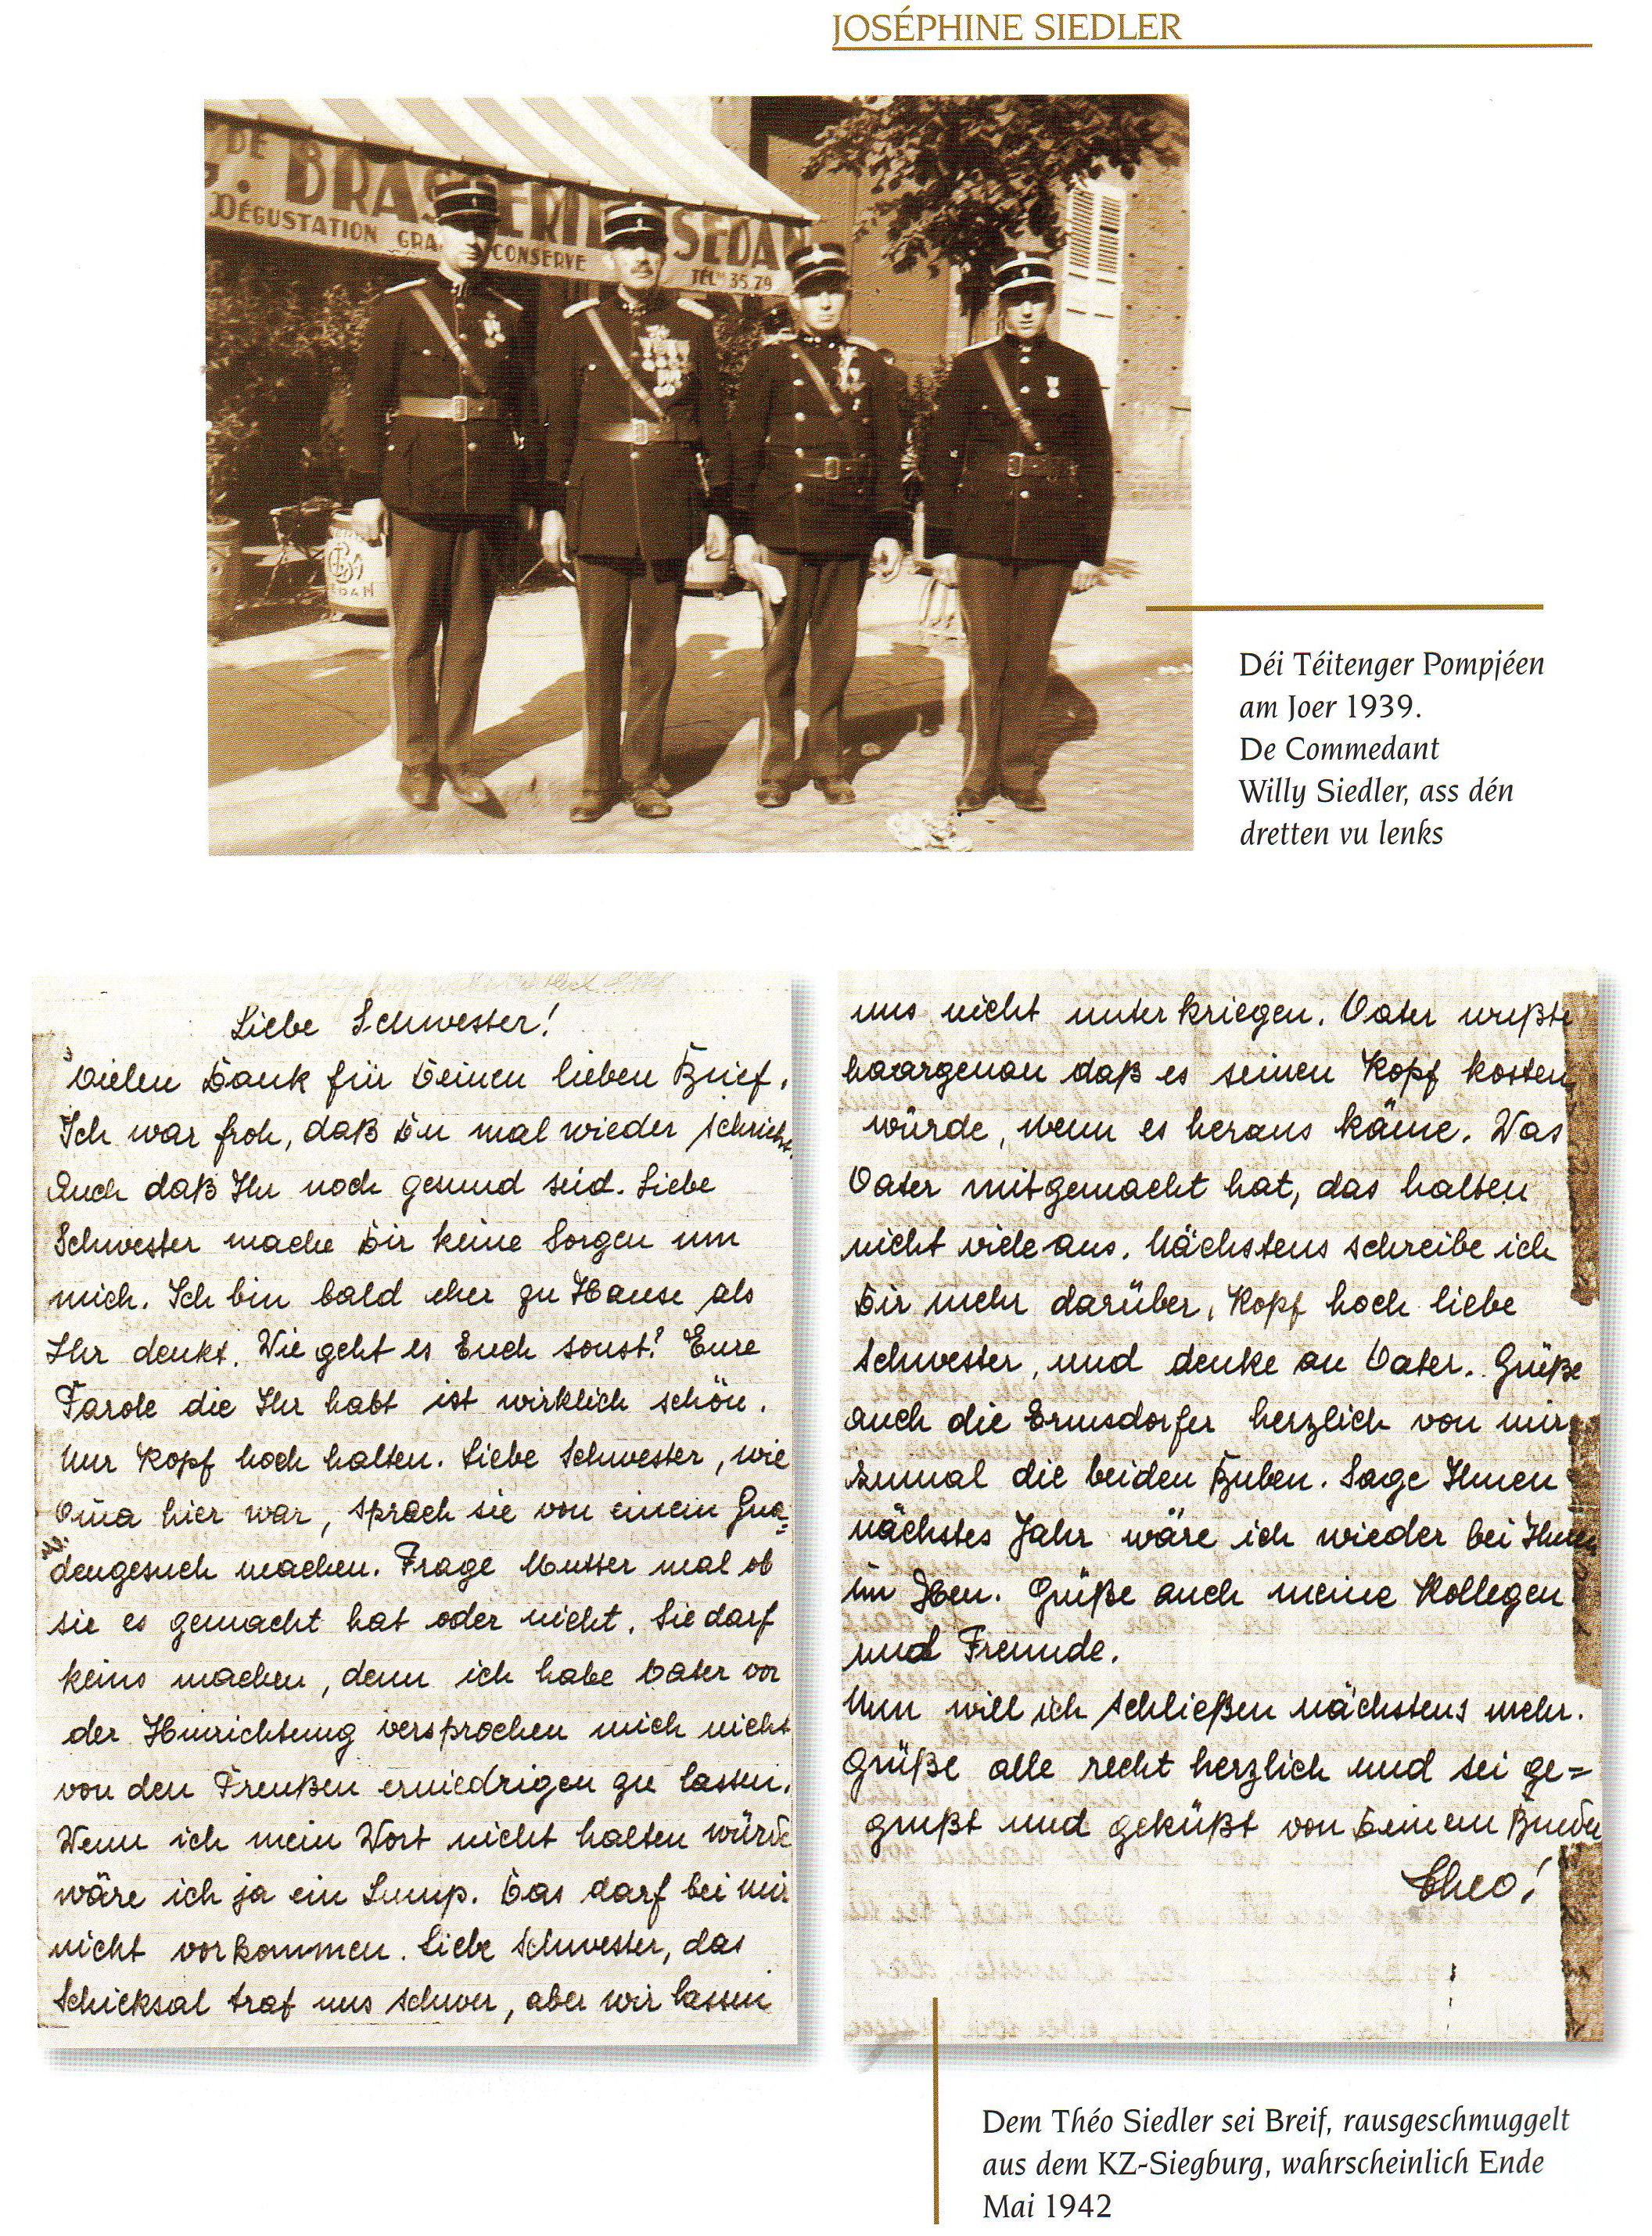 JOSÉPHINE SIEDLER
DE BRASSERIE SEDAN
DÉGUSTATION GRA CONSERVE
TÉL. 35.79
Déi Téitenger Pompjéen
am Joer 1939.
De Commedant
Willy Siedler, ass dén
dretten vu lenks
Liebe Schwester!
Vielen Dank für Deinen lieben Brief.
Ich war froh, daß Du mal wieder schriebst.
Auch daß Ihr noch gesund seid. Liebe
Schwester mache Dir keine Sorgen um
mich. Ich bin bald eher zu Hause als
Ihr denkt. Wie geht es Euch sonst? Eure
Parole die Ihr habt ist wirklich schön.
Nur Kopf hoch halten. Liebe Schwester, wie
Oma hier war, sprach sie von einem Gna=
dengesuch machen. Frage Mutter mal ob
sie es gemacht hat oder nicht. Sie darf
keins machen, denn ich habe Vater vor
der Hinrichtung versprochen mich nicht
von den Preußen erniedrigen zu lassen.
Wenn ich mein Wort nicht halten würde
wäre ich ja ein Lump. Das darf bei mir
nicht vorkommen. Liebe Schwester, das
Schicksal traf uns schwer, aber wir lassen
uns nicht unter kriegen. Vater wußte
haargenau daß es seinen Kopf kosten
würde, wenn es heraus käme. Was
Vater mitgemacht hat, das halten
nicht viele aus. Nächstens schreibe ich
Dir mehr darüber, Kopf hoch liebe
Schwester, und denke an Vater. Grüße
auch die Ermsdorfer herzlich von mir
zumal die beiden Buben. Sage Ihnen
nächstes Jahr wäre ich wieder bei Ihnen
im Heu. Grüße auch meine Kollegen
und Freunde.
Nun will ich schließen nächstens mehr.
Grüße alle recht herzlich und sei ge=
grußt und geküßt von Deinem Bruder
Theo!
Dem Théo Siedler sei Breif, rausgeschmuggelt
aus dem KZ-Siegburg, wahrscheinlich Ende
Mai 1942